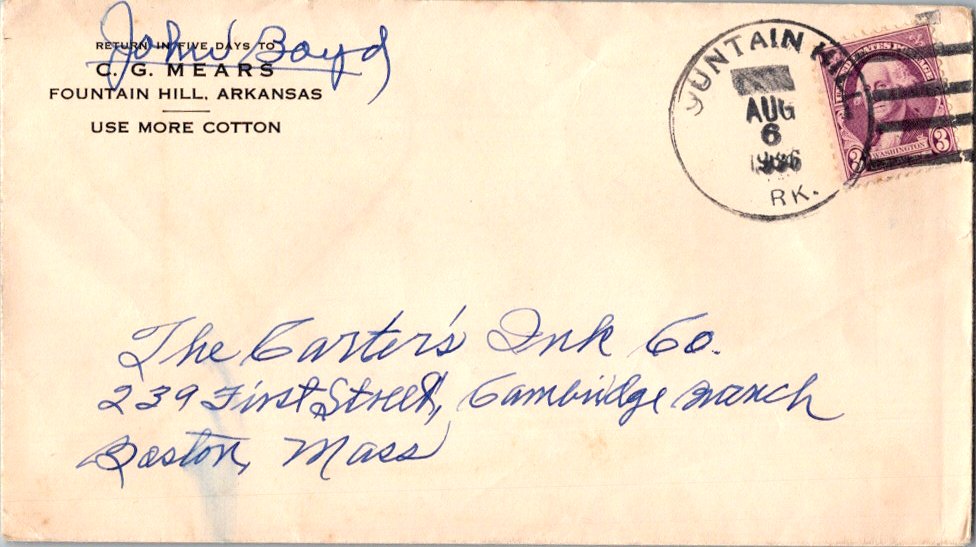 RETURN IN FIVE DAYS TO
John Boyd
C. G. MEARS
FOUNTAIN HILL, ARKANSAS
USE MORE COTTON
OUNTAIN HILL
AUG
6
RK.
UNITED STATES POSTAGE
3 WASHINGTON 3
The Carter's Ink Co.
239 First Street, Cambridge Branch
Boston, Mass